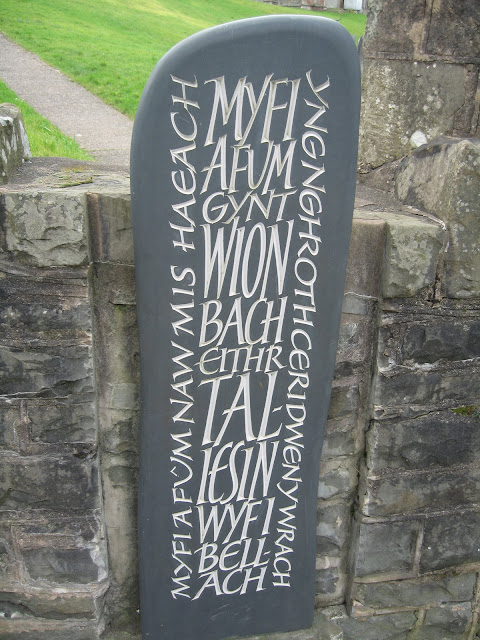 MYFI A FÛM NAW MIS HAEACH
MYFI
A FUM
GYNT
WION
BACH
EITHR
TAL-
IESIN
WYFI
BELL-
ACH
YNGNGHROTH CERIDWEN Y WRACH